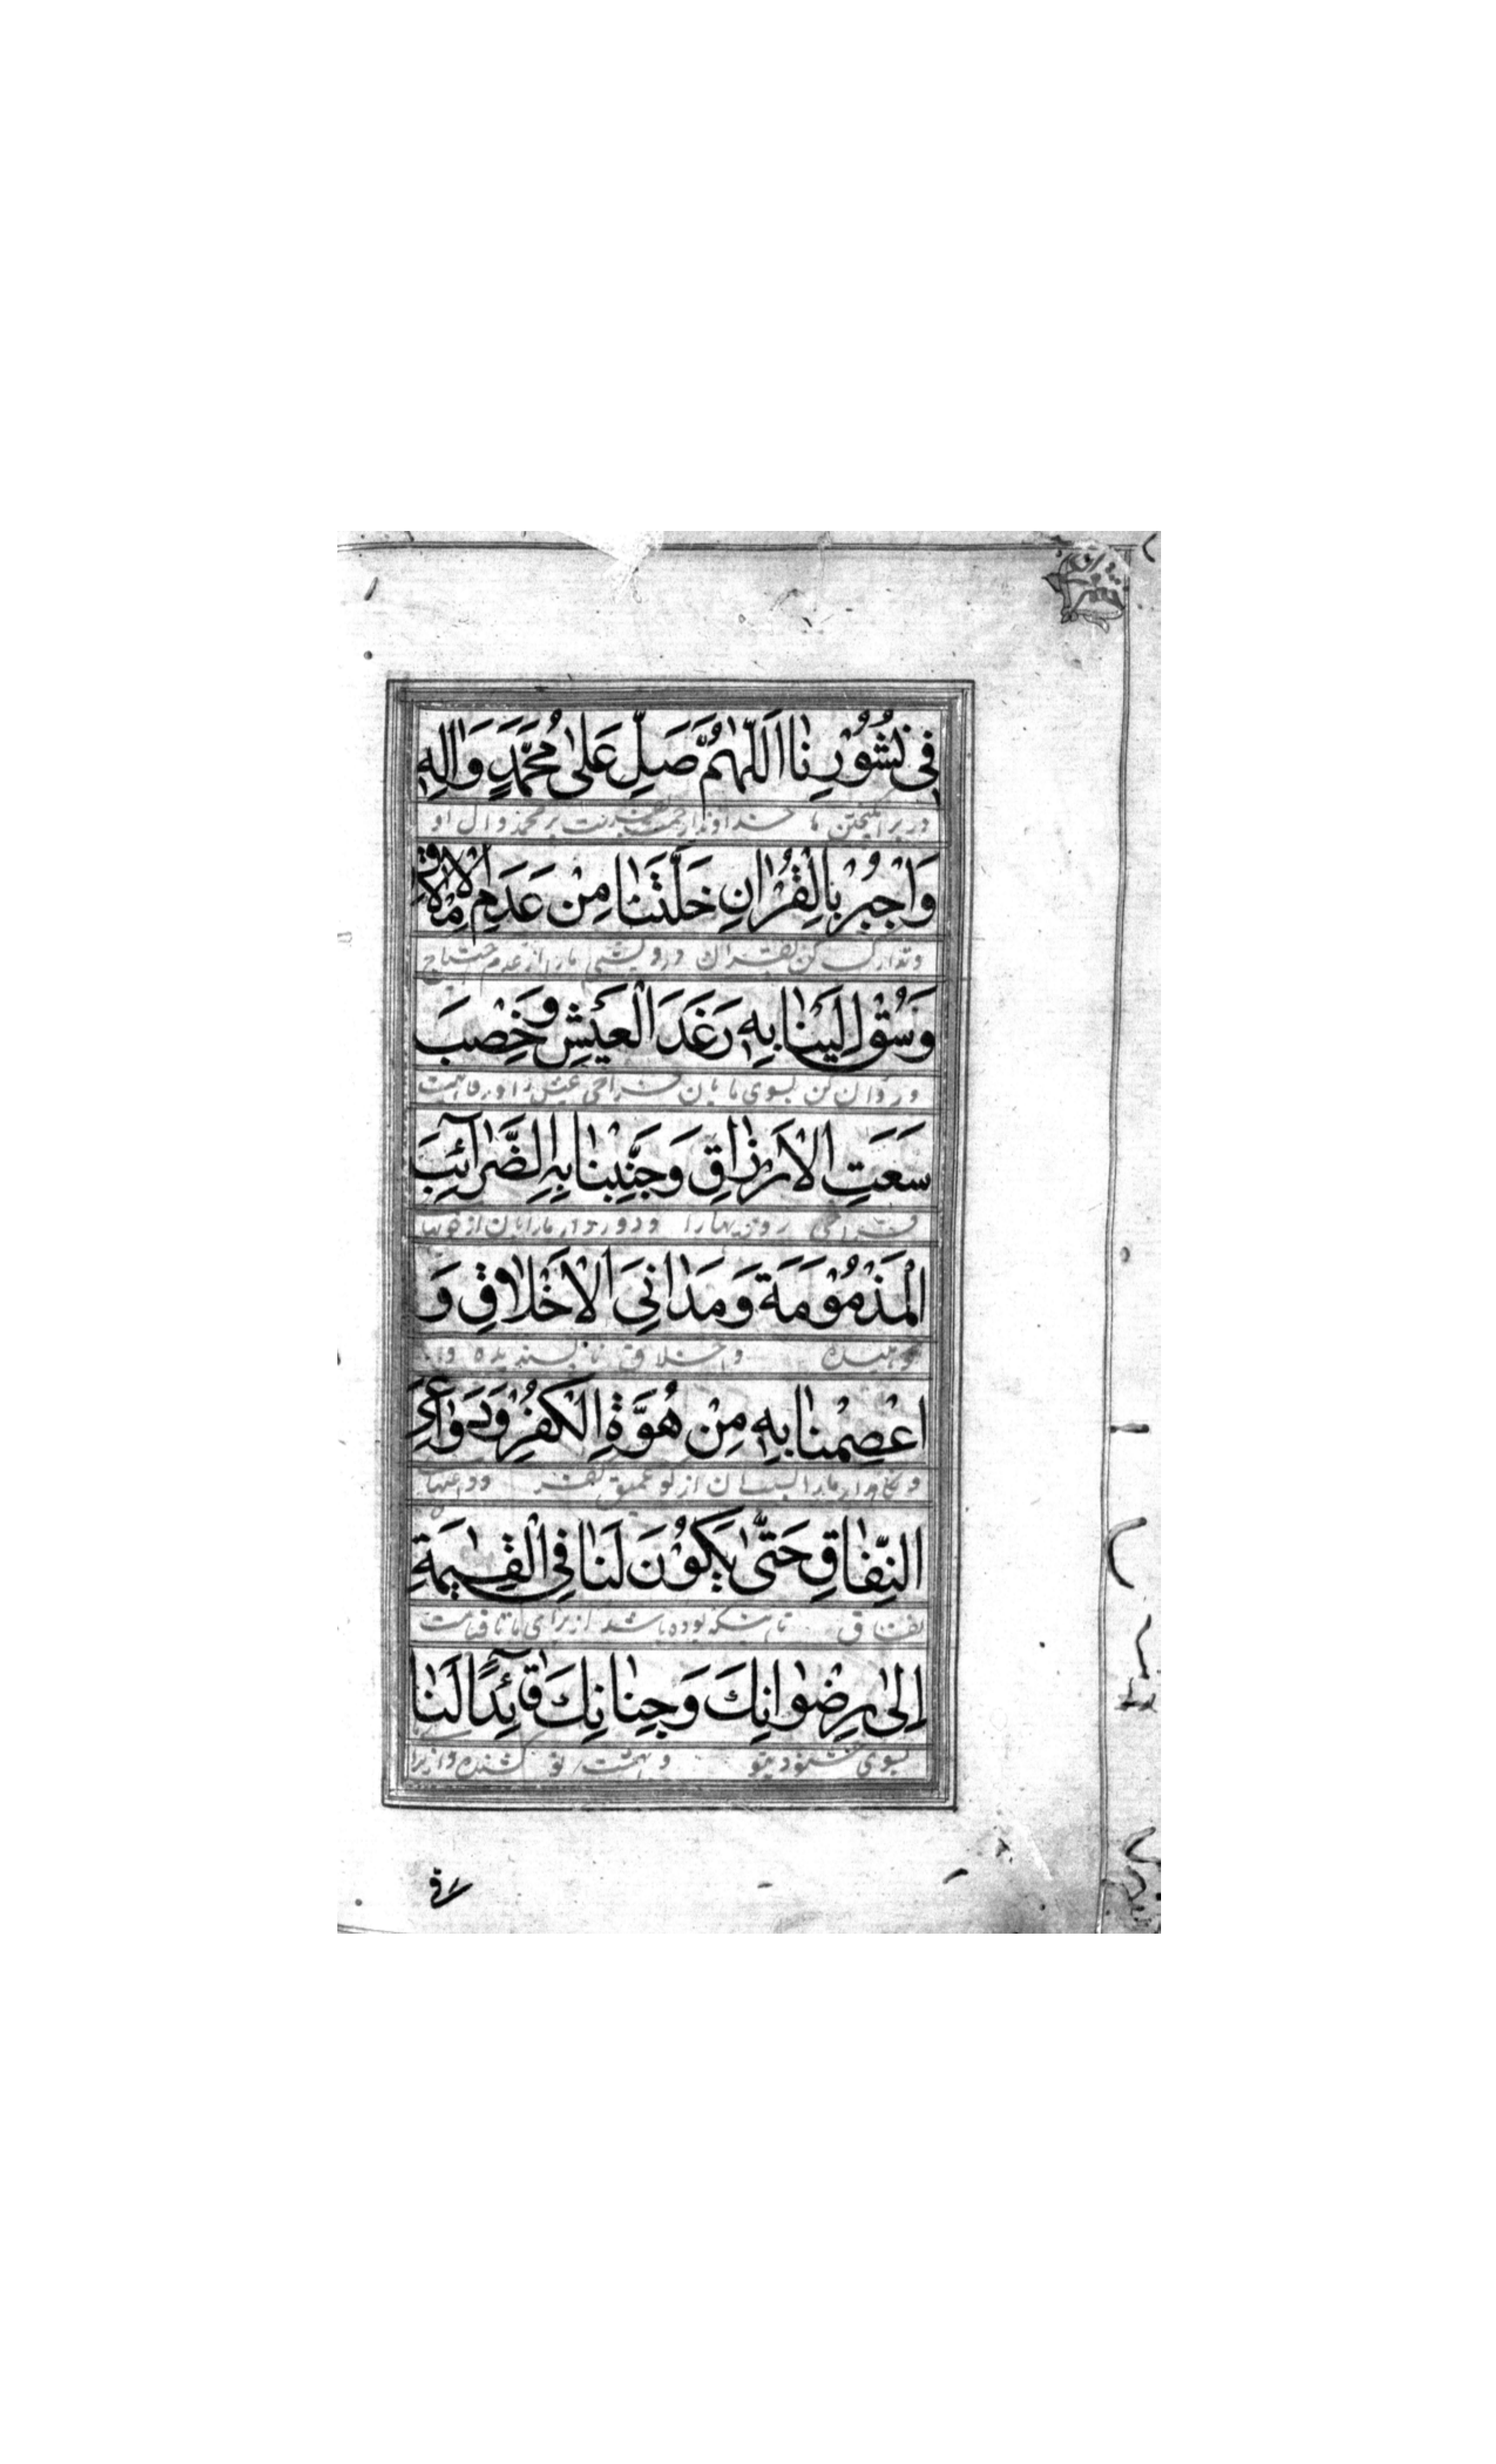 فِي نُشُوْرِنٰا اَللّٰهُمَّ صَلِّ عَلىٰ مُحَمَّدٍ وَاٰلِهٖ
در برانگیختن ما خداوندا رحمت بفرست بر محمد و ال او
وَاْجْبُرْ بِالْقُرْاٰنِ خَلَّتَنٰا مِنْ عَدَمِ الْاِمْلاٰقِ
و تدارک کن بقران درویشی ما را از عدم احتیاج
وَسُقْ اِلَيْنٰا بِهٖ رَغَدَ الْعَيْشِ وَخِصْبَ
و روان کن بسوی ما بان فراخی عیش را و رفاهیت
سَعَتِ الْاَرْزٰاقِ وَجَنِّبْنٰا بِهِ الضَّرٰآئِبَ
فراخی روزیها را و دور دار ما را بان از خویها
الْمَذْمُوْمَةَ وَمَدٰانِيَ الْاَخْلاٰقِ وَ
نکوهیده واخلاق نا پسندیده و
اعْصِمْنٰا بِهٖ مِنْ هُوَّةِ الْكُفْرِ وَدَوٰاعِيَ
و نگاهدار ما را بسبب ان از گو عمیق کفر و داعیهای
النِّفٰاقِ حَتّٰى يَكُوْنَ لَنٰا فِي الْقِيٰمَةِ
نفاق تا اینکه بوده باشد از برای ما تا قیامت
اِلىٰ رِضْوٰانِكَ وَجِنٰانِكَ قٰآئِدًا لَنٰا
بسوی خشنودیتو و بهشت تو کشنده و از برا